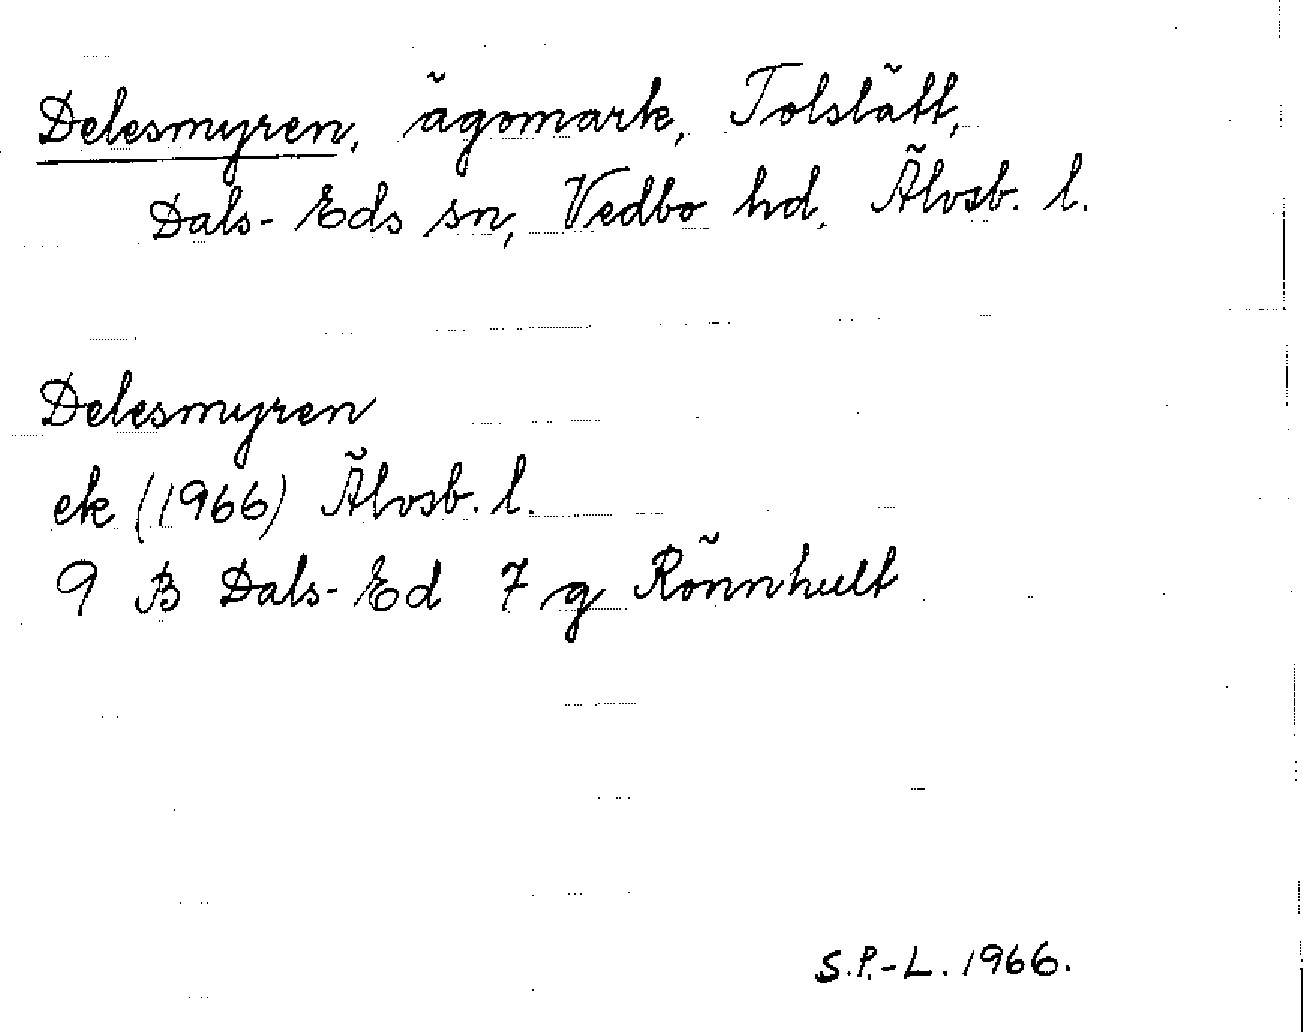 Delesmyren, ägomark, Tolslätt,
Dals-Eds sn, Vedbo hd, Älvsb. l.
Delesmyren
ek (1966) Älvsb. l.
9 B Dals-Ed 7 g Rönnhult
S.P.-L. 1966.